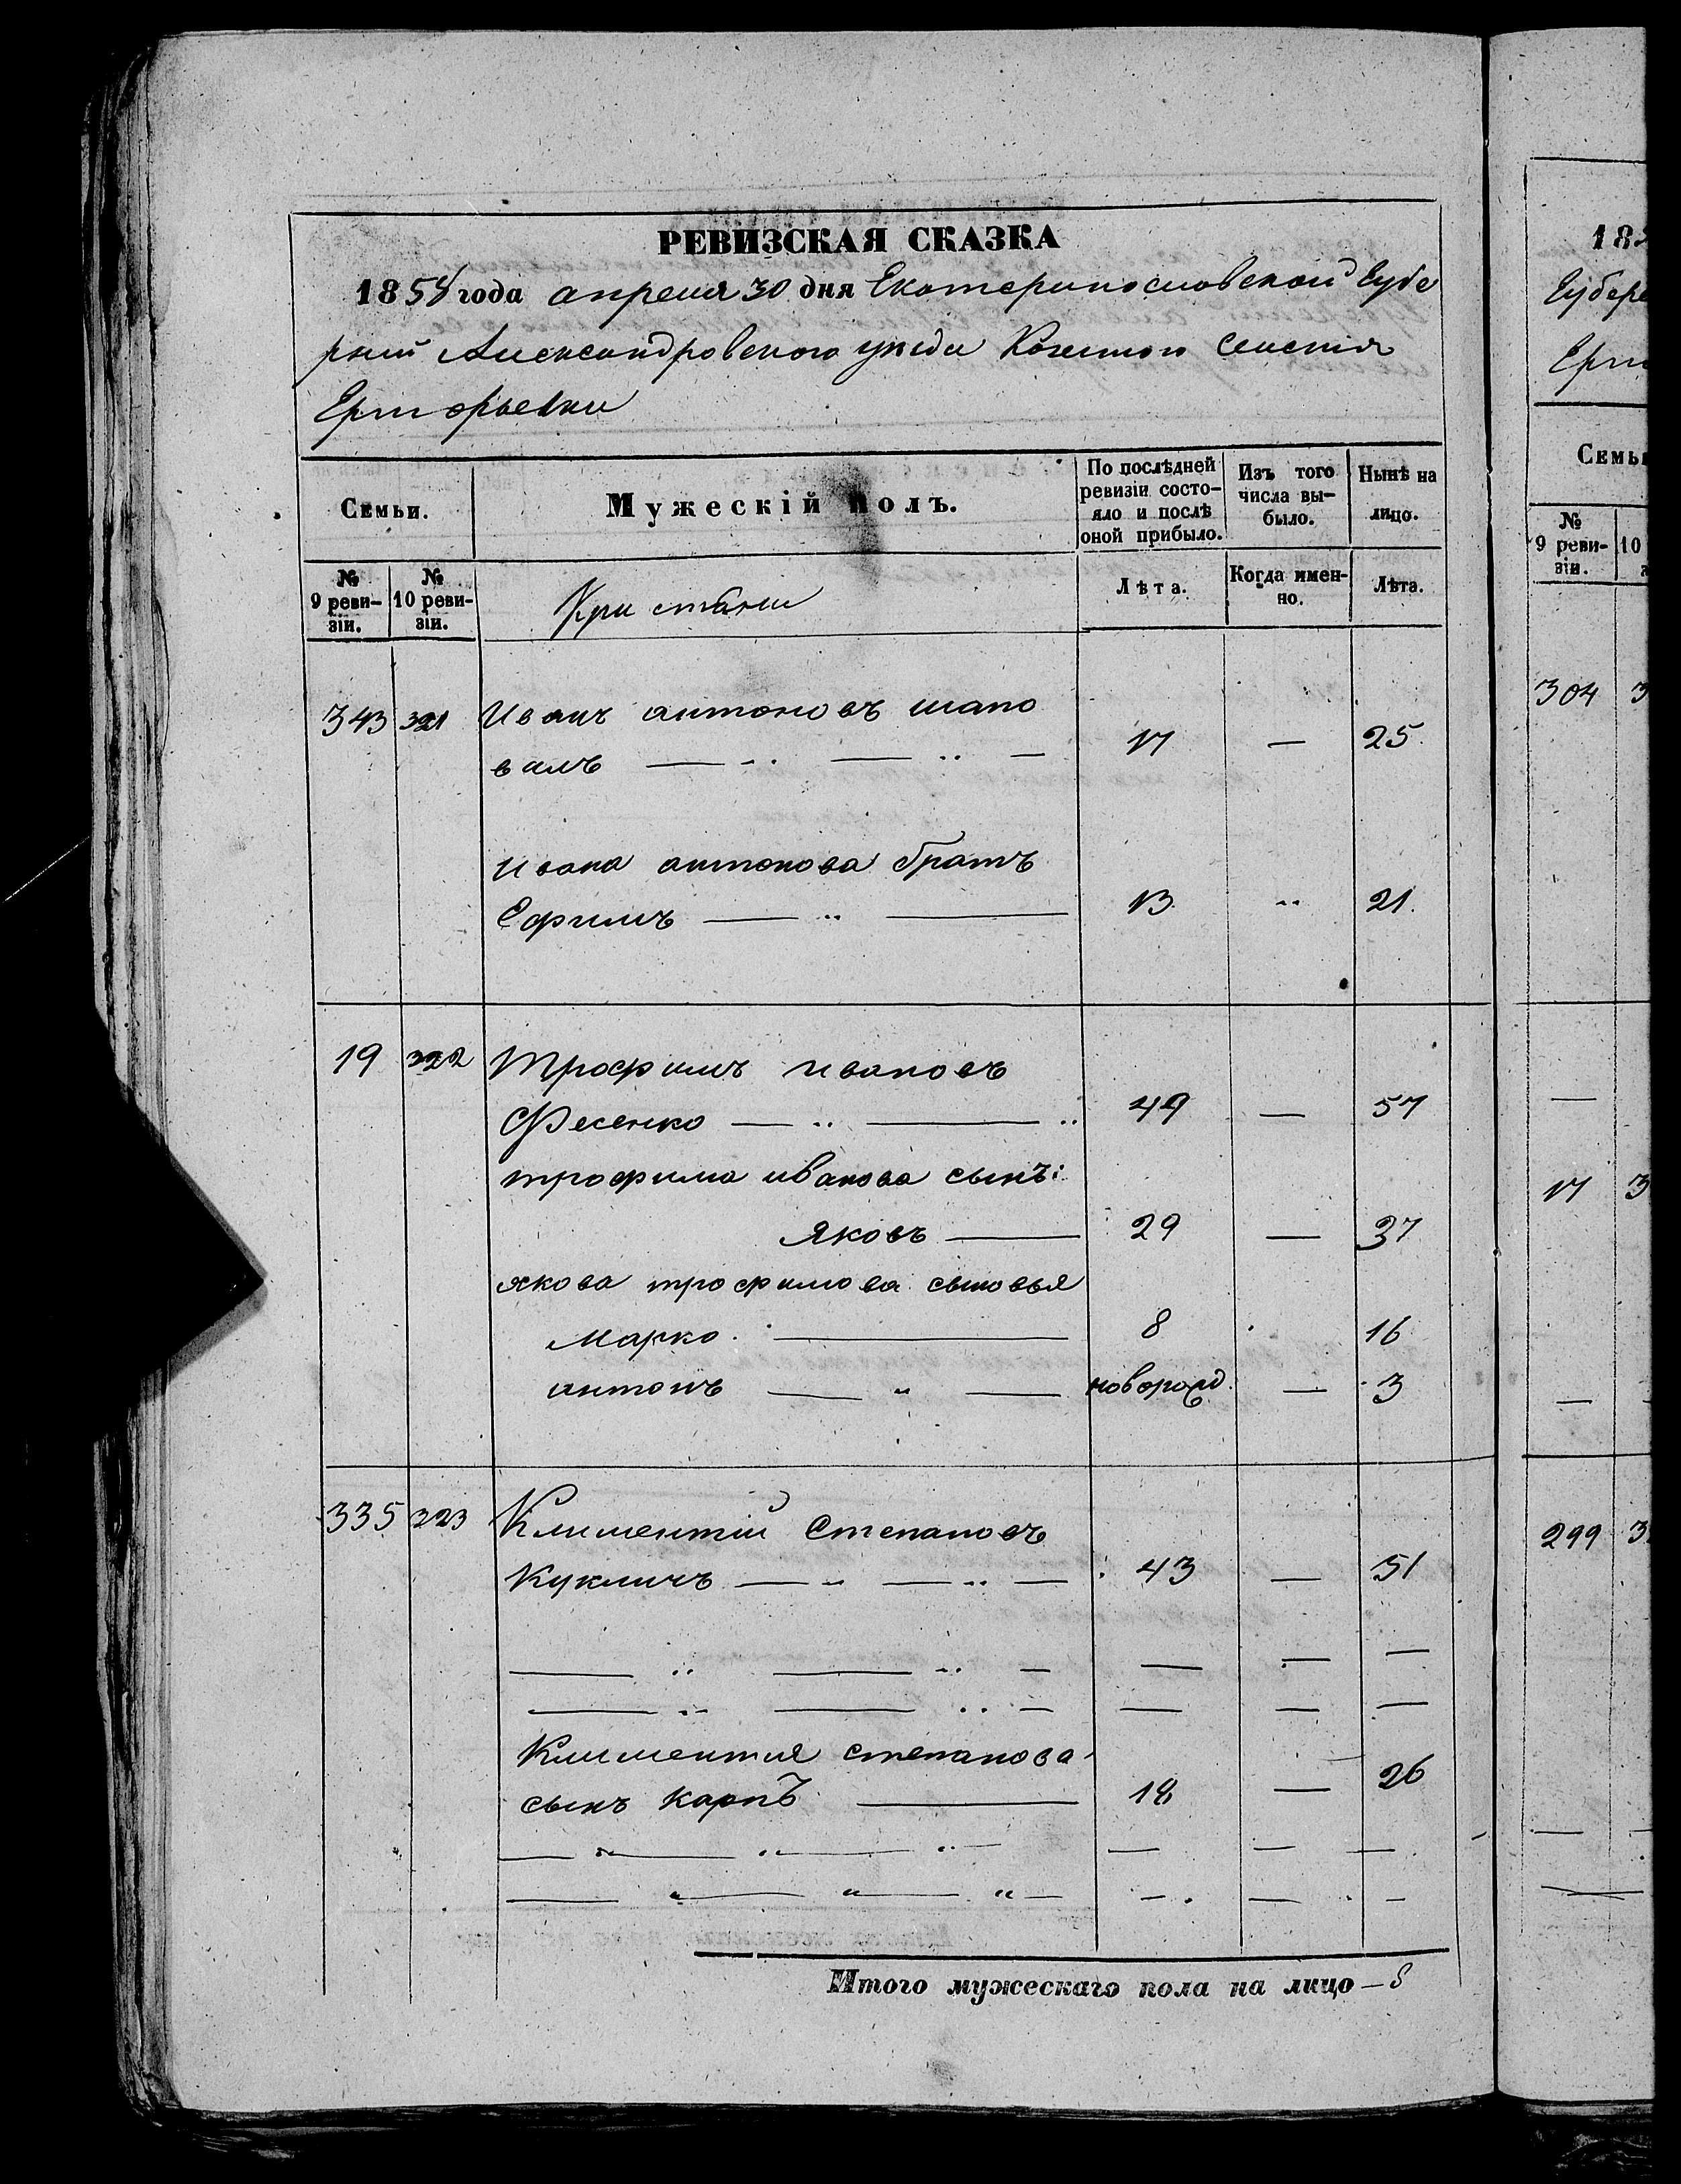 РЕВИЗСКАЯ СКАЗКА
1858 года апреля 30 дня Екатеринославской Губе
рніи Александровского уезда селенія
Григорьевки
Семьи.
Мужескій полъ.
По послѣдней ревизіи состо-
яло и послѣ оной прибыло.
Изъ того числа вы-
было.
Нынѣ на лицо.
№ 9 реви-
зіи.
№ 10 реви-
зіи.
Кристяни
Лѣта.
Когда имен-
но.
Лѣта.
343 321 Иванъ антоновъ шапо
валъ — 17 — 25.
ивана антонова братъ
Ефимъ — 13 " 21.
19 322 Трофимъ ивановъ
Фесенко — 49 — 57
трофима иванова сынъ:
Яковъ — 29 — 37
якова трофимова сыновья
Марко. — 8 16
антонъ — " — новорожд. — 3
335 323 Климентій Степановъ
Кукличъ — 43 — 51
Климентия степанова
сынъ Карпъ — 18 — 26
Итого мужескаго пола на лицо — 8
182
Губере
Григ
Семьи
№ 9 реви-
зіи.
10
304 3
17 3
299 3